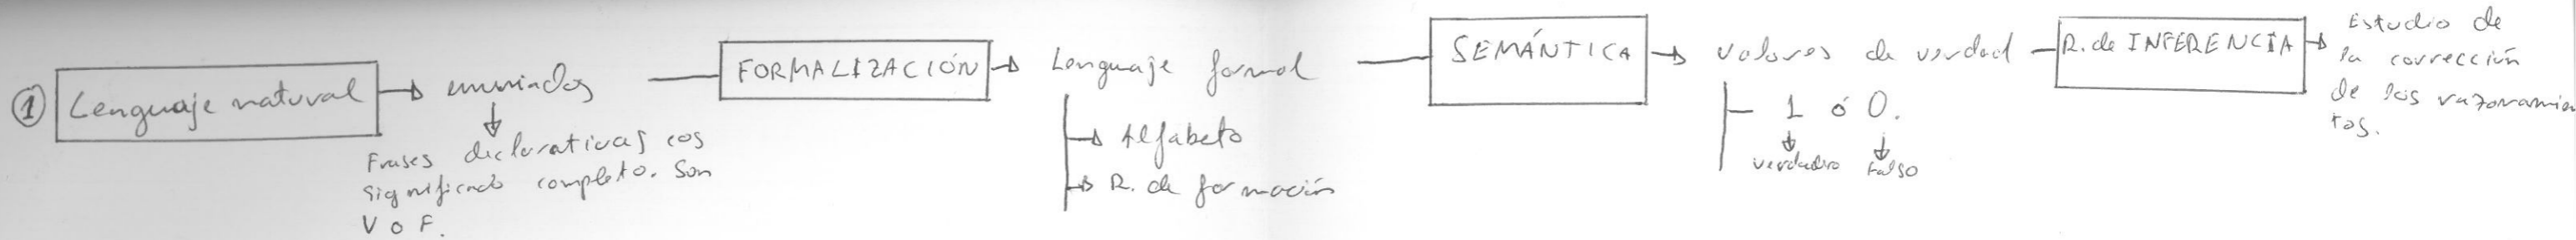 1 Lenguaje natural → enunciados
Frases declarativas cos
significado completo. Son
V o F.
FORMALIZACIÓN → Lenguaje formal
→ Alfabeto
→ R. de formación
SEMÁNTICA → Valores de verdad
1 ó 0.
verdadero Falso
R. de INFERENCIA →
Estudio de
la corrección
de los razonamien
tos.